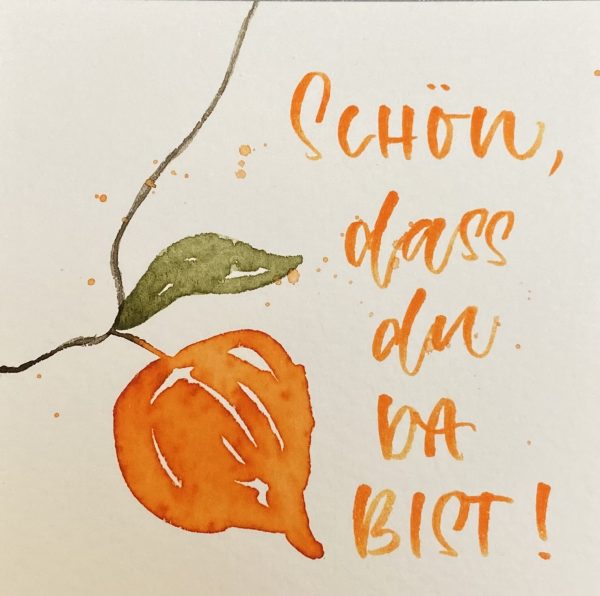 SCHÖN,
dass
du
DA
BIST!